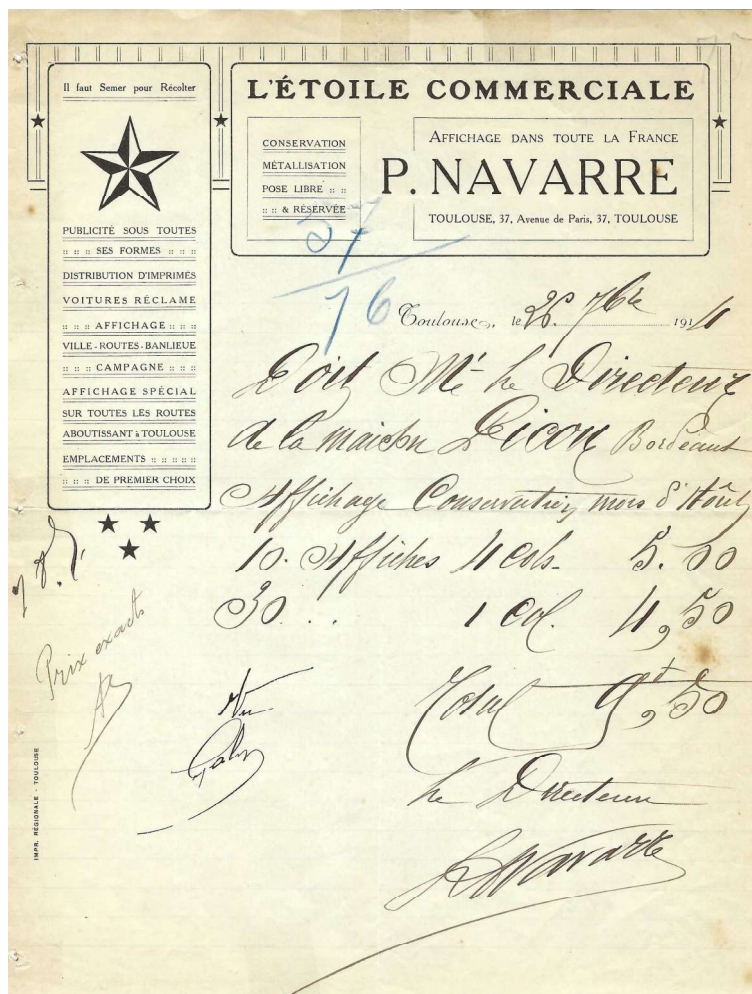 Il faut Semer pour Récolter
PUBLICITÉ SOUS TOUTES
:: :: :: SES FORMES :: :: ::
DISTRIBUTION D'IMPRIMÉS
VOITURES RÉCLAME
:: :: :: AFFICHAGE :: :: ::
VILLE - ROUTES - BANLIEUE
:: :: :: CAMPAGNE :: :: ::
AFFICHAGE SPÉCIAL
SUR TOUTES LES ROUTES
ABOUTISSANT à TOULOUSE
EMPLACEMENTS :: :: :: ::
:: :: :: DE PREMIER CHOIX
L'ÉTOILE COMMERCIALE
CONSERVATION
MÉTALLISATION
POSE LIBRE :: ::
:: :: & RÉSERVÉE
AFFICHAGE DANS TOUTE LA FRANCE
P. NAVARRE
TOULOUSE, 37, Avenue de Paris, 37, TOULOUSE
57
76
Toulouse, le 26 7bre 1911
Doit Mr le Directeur
de la maison Picon Bordeaux
Affichage Conservation mois d'Août
10. Affiches 4 cols. 5.00
30 . . . 1 col. 4,50
Total 9f,50
Le Directeur
P. Navarre
Prix exacts
Vu
IMPR. RÉGIONALE - TOULOUSE